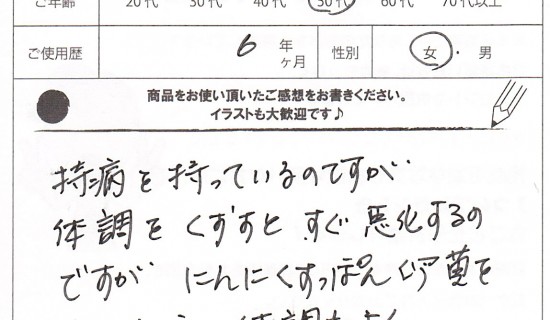 ご年齢 20代 30代 40代 50代 60代 70代以上
ご使用歴 6 年 ヶ月 性別 女・男
商品をお使い頂いたご感想をお書きください。
イラストも大歓迎です♪
持病を持っているのですが
体調をくずすとすぐ悪化するの
ですが にんにくすっぽん
を
体調もよく